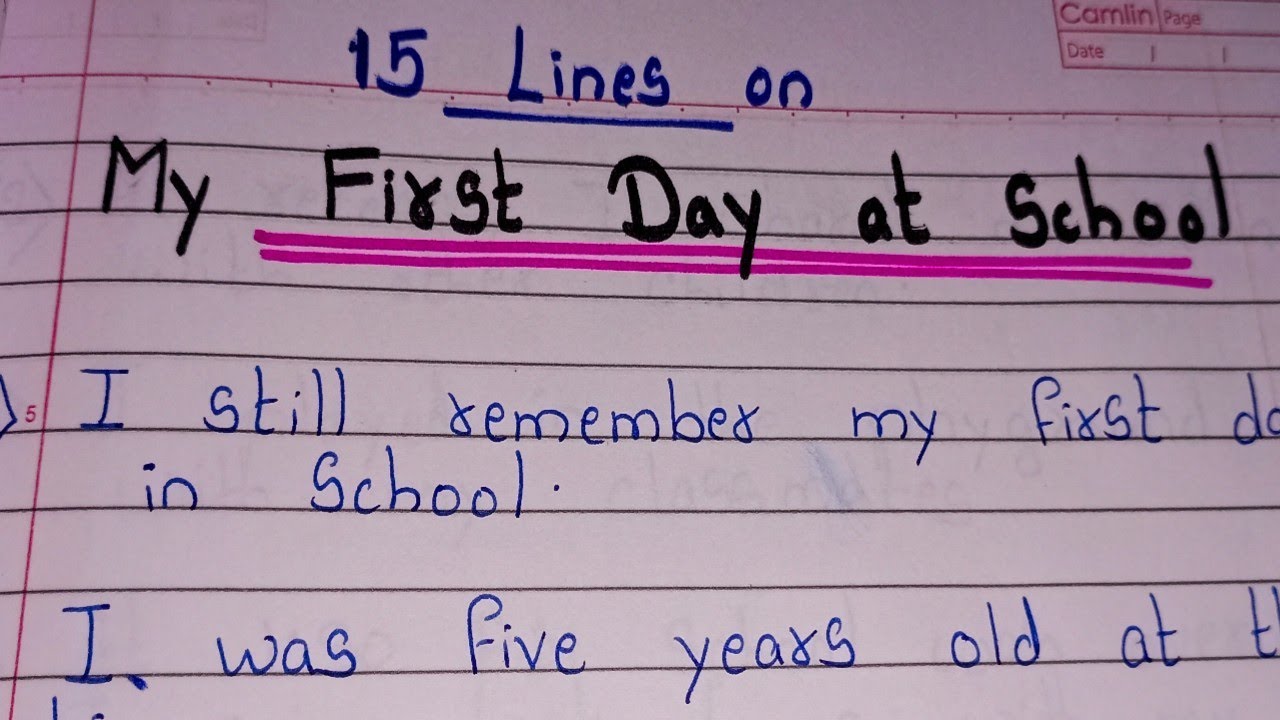 Camlin Page
Date
15 Lines on
My First Day at School
5 I still remember my first
in School.
I was five years old at